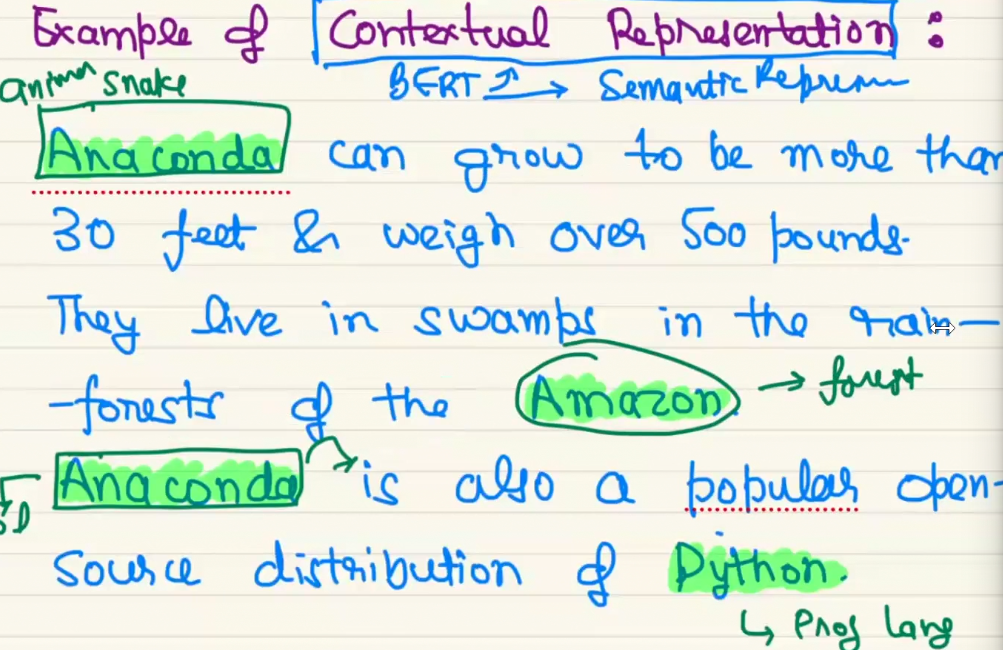 Example of Contextual Representation :
animal snake
BERT → Semantic
Anaconda can grow to be more than
30 feet & weigh over 500 pounds.
They live in swamps in the rain-
-forests of the Amazon. → forest
Anaconda is also a popular open-
source distribution of Python.
↳ Prog lang